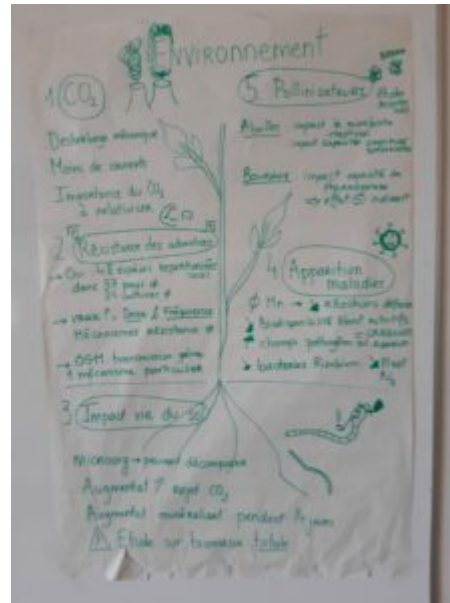 ENVIRONNEMENT
1 CO₂
Désherbage mécanique
Moins de
Importance du CO₂
à relativiser
2 Résistance des adventices
→ Car 48 espèces
dans 37 pays ≠
34 cultures ≠
→ Dose & Fréquence
Mécanismes résistance ≠
→ OGM transmission gène
1 mécanisme particulier
3 Impact vie du sol
microorg → peuvent décomposer
Augmentat° rejet CO₂
Augmentat° minéralisat° pendant 14 jours
Etude sur biomasse totale
5 Pollinisateurs
Abeilles impact le microbiote
intestinal
impact capacités cognitives
Bourdons impact capacité de
⇒ effet indirect
4 Apparition
maladies
Mn → réactions défense
Biodisponibilité
champs pathogènes
bactéries Rhizobium
N₂